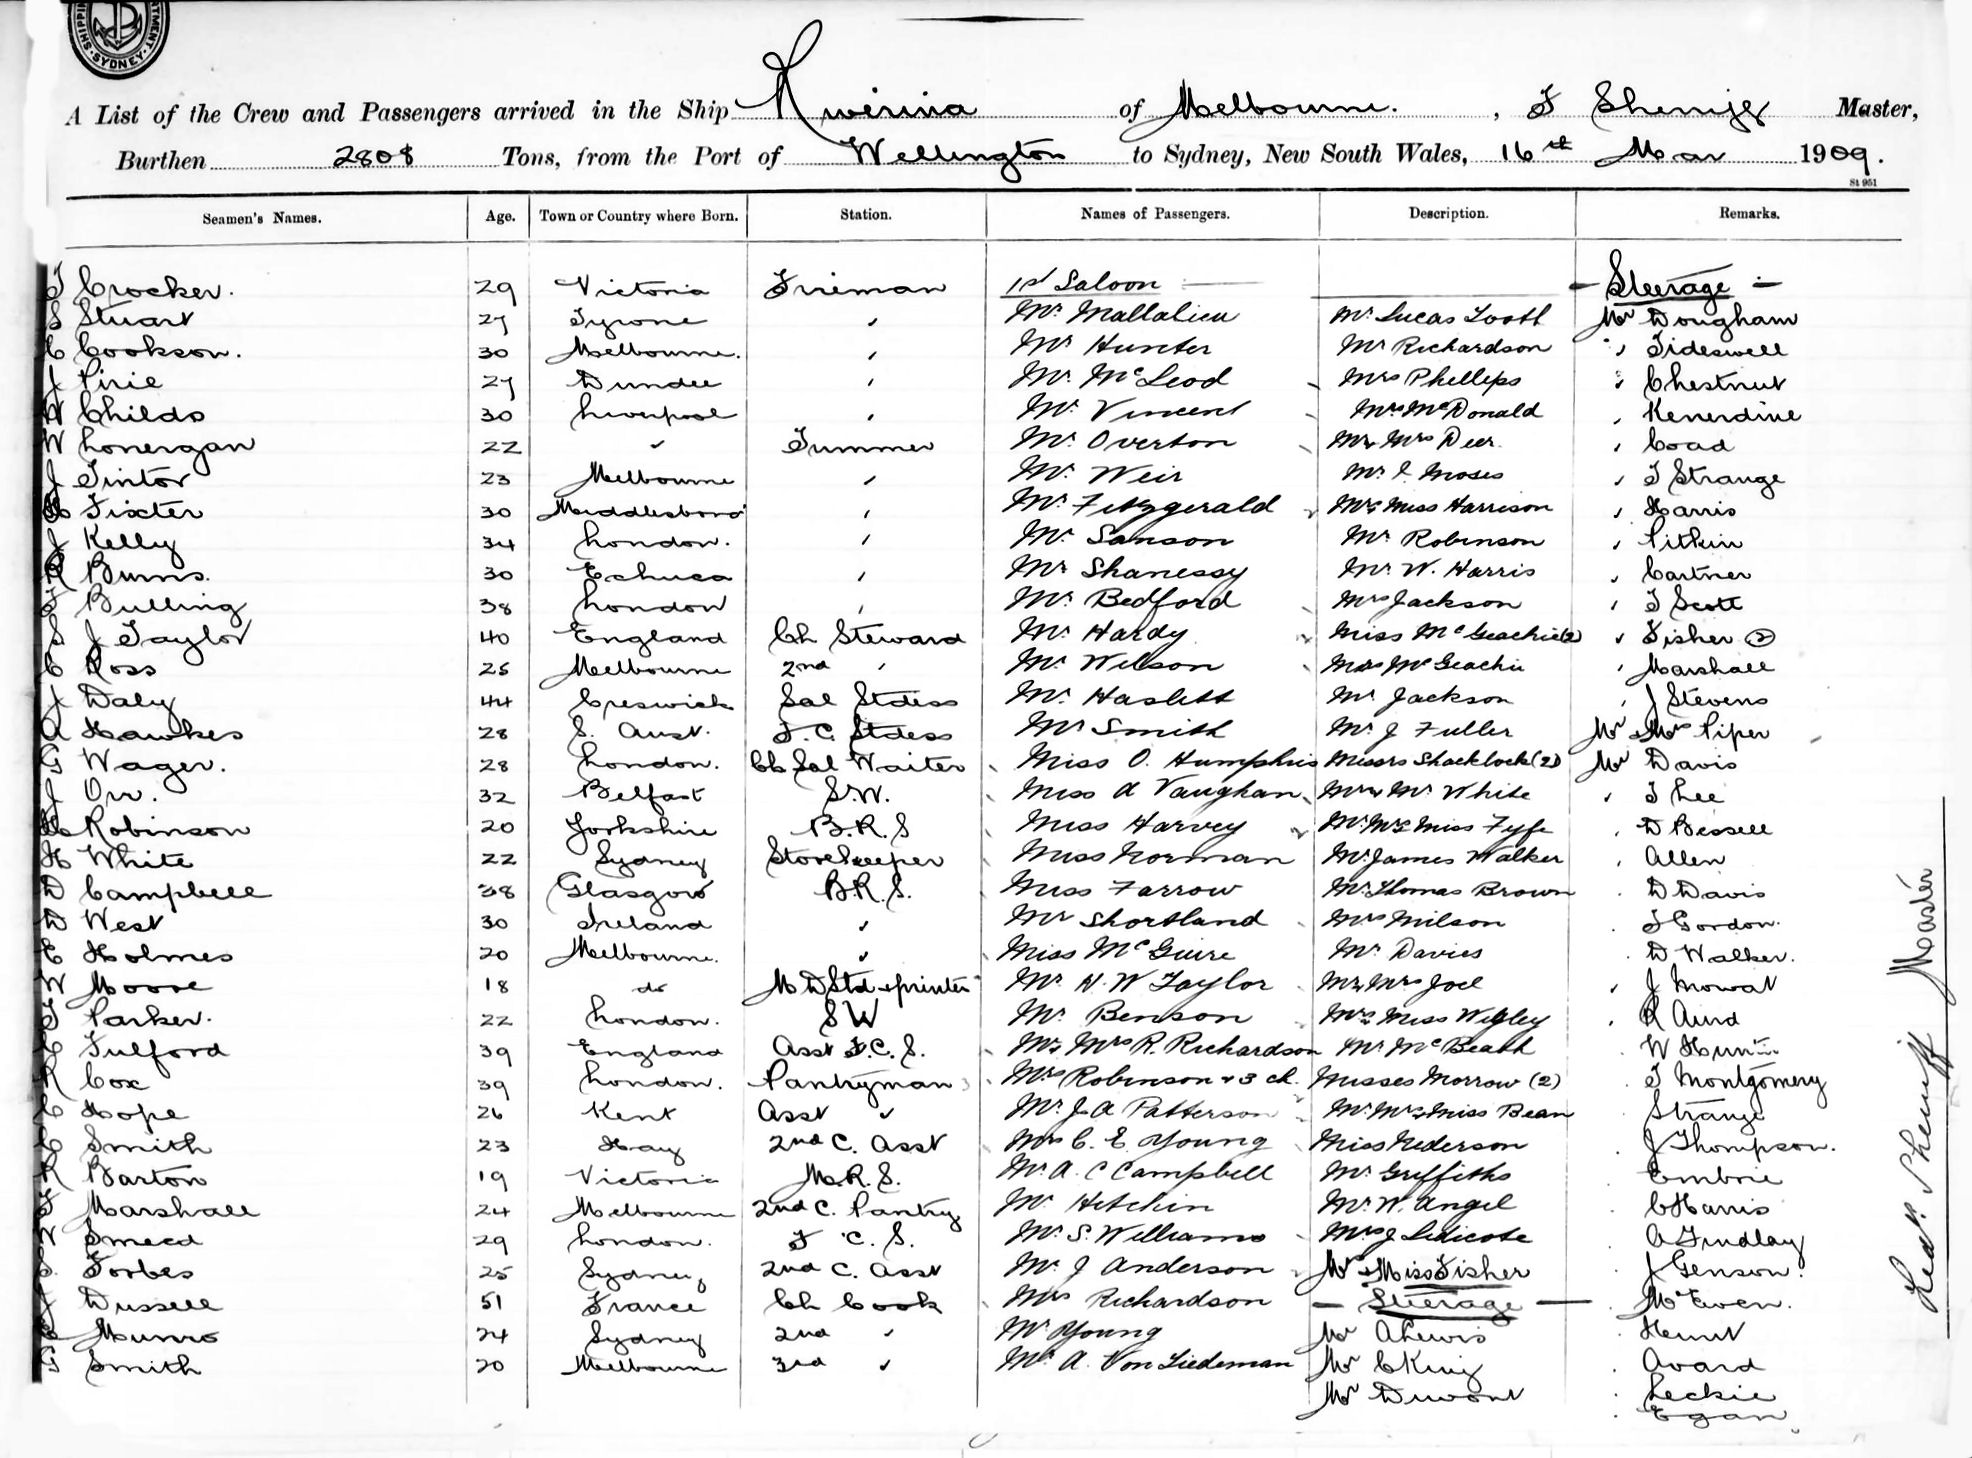 SHIPPING DEPARTMENT. SYDNEY.
A List of the Crew and Passengers arrived in the Ship Riverina of Melbourne. , F Sherriff Master,
Burthen 2808 Tons, from the Port of Wellington to Sydney, New South Wales, 16th Mar 1909.
St 951
Seamen's Names. Age. Town or Country where Born. Station. Names of Passengers. Description. Remarks.
Crocker. 29 Victoria Fireman 1st Saloon — Steerage —
S Stuart 27 Tyrone " Mr Mallalieu Mr Lucas Tooth Mr Dongham
C Cookson. 30 Melbourne. " Mr Hunter Mr Richardson " Tideswell
J Pirie 27 Dundee " Mr McLeod Mrs Phelleps " Chestnut
W Childs 30 Liverpool " Mr Vincent Mrs McDonald " Kenerdine
W Lonergan 22 " Trimmer Mr Overton Mr & Mrs Deer. " Coad
J Tintor 23 Melbourne " Mr Weir Mr Moses " T Strange
Fixter 30 Middlesboro' " Mr Fitzgerald Mrs & Miss Harrison " Harris
J Kelly 34 London. " Mr Sanson Mr Robinson " Pitkin
R Burns. 30 Echuca " Mr Shanessy Mr W. Harris " Cartner
Bulling 38 London " Mr Bedford Mrs Jackson " T Scott
S J Taylor 40 England Ch Steward Mr Hardy Miss McGeachie (2) " Fisher (2)
C Ross 25 Melbourne 2nd " Mr Wilson McGeachie " Marshall
J Daly 44 Creswick Sal Stdess Mr Haslett Mr Jackson " J Stevens
A Hawkes 28 S. Aust. F. C. Stdess Mr Smith Mr J Fuller Mr & Mrs Piper
G Wager. 28 London. Ch Sal Waiter Miss O. Humphris Messrs Shacklock (2) Mr Davis
J Orr. 32 Belfast S.W. Miss A Vaughan White " T Lee
Robinson 20 Yorkshire B.R.S Miss Harvey Mr Mrs & Miss Fyfe " D Bessell
H White 22 Sydney Storekeeper Miss Norman Mr James Walker " Allen
D Campbell 38 Glasgow B.R.S. Miss Farrow Mr Thomas Brown " D Davis
D West 30 Ireland " Mr Shortland Mrs Milson " Gordon.
E Holmes 20 Melbourne. " Miss McGuire Mr Davies " D Walker.
W Moore 18 do M D Std & printer Mr H. W Taylor Mr & Mrs Joel " J Mowat
Parker. 22 London. S W Mr Benson Mrs & Miss Wigley " R Aird
C Fulford 39 England Asst F.C.S. Mr & Mrs R. Richardson Mr McBeath " W
R Cox 39 London. Pantryman Mrs Robinson & 3 ch. Misses Morrow (2) " T Montgomery
C Hope 26 Kent Asst " Mr J. A Patterson Mr Mrs & Miss Bean " Strange
C Smith 23 Hay 2nd C. Asst Mrs C. E. Young Miss Nederson " J Thompson.
R Barton 19 Victoria M.R.S. Mr A. C Campbell Mr Griffiths " Embrie
Marshall 24 Melbourne 2nd C. Pantry Mr Hitchin Mr W. Angel " C Harris
W Smeed 29 London. F C. S. Mr S. Williams Mrs J Lidicote " A Findlay
S. Forbes 25 Sydney 2nd C. Asst Mr J Anderson Mr & Miss Fisher " J Genson.
J Dussell 51 France Ch Cook Mrs Richardson — Steerage — " McEwen.
Munro 24 Sydney 2nd " Mr Young Mr A Lewis " Hemit
G Smith 20 Melbourne 3rd " Mr A. Von Tiedeman Mr C King " Avard
Mr Dumont " Leckie
" Egan
Sherriff Master